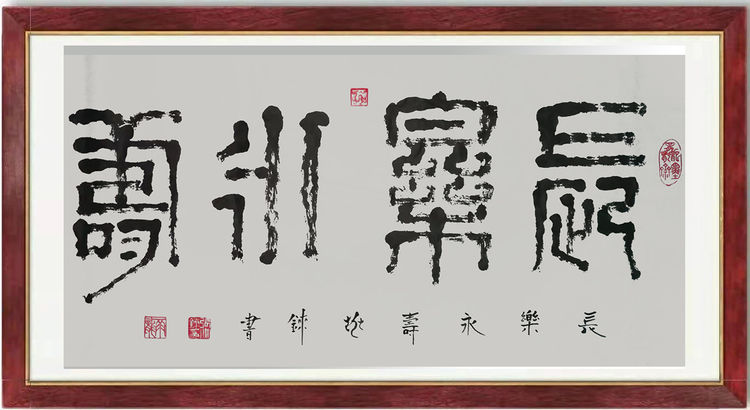 長樂永壽
長樂永壽書